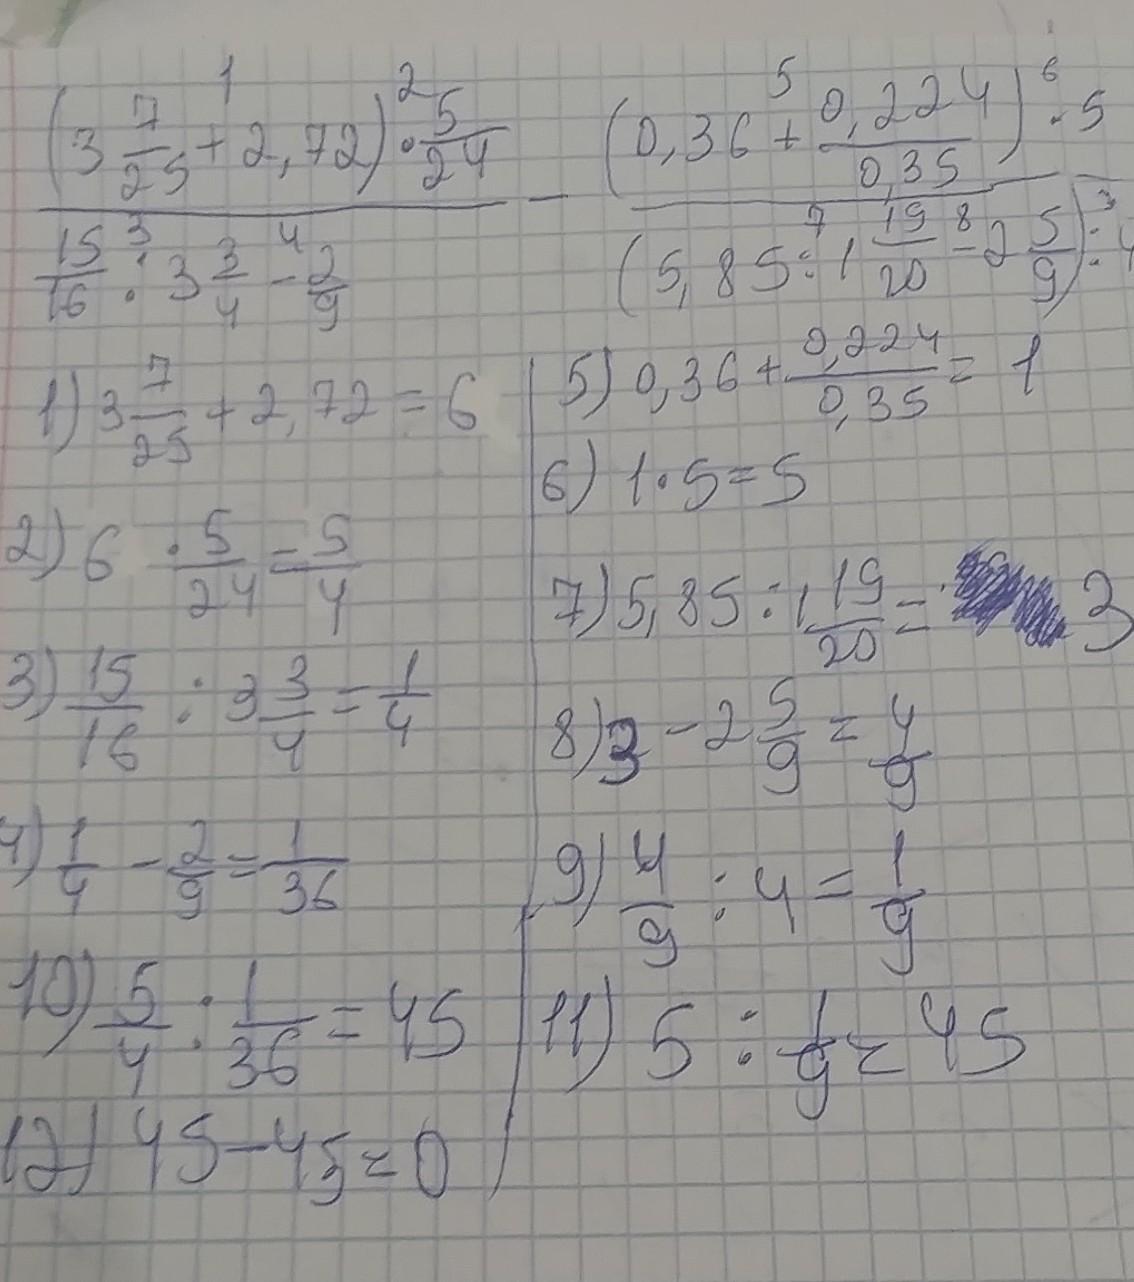 (3 7/25 + 2,72) · 5/24 / (15/16 : 3 3/4 - 2/9) - (0,36 + 0,224/0,35) · 5 / (5,85 : 1 19/20 - 2 5/9) : 4
1) 3 7/25 + 2,72 = 6
2) 6 · 5/24 = 5/4
3) 15/16 : 3 3/4 = 1/4
4) 1/4 - 2/9 = 1/36
10) 5/4 : 1/36 = 45
12) 45 - 45 = 0
5) 0,36 + 0,224/0,35 = 1
6) 1 · 5 = 5
7) 5,85 : 1 19/20 = 3
8) 3 - 2 5/9 = 4/9
9) 4/9 : 4 = 1/9
11) 5 : 1/9 = 45